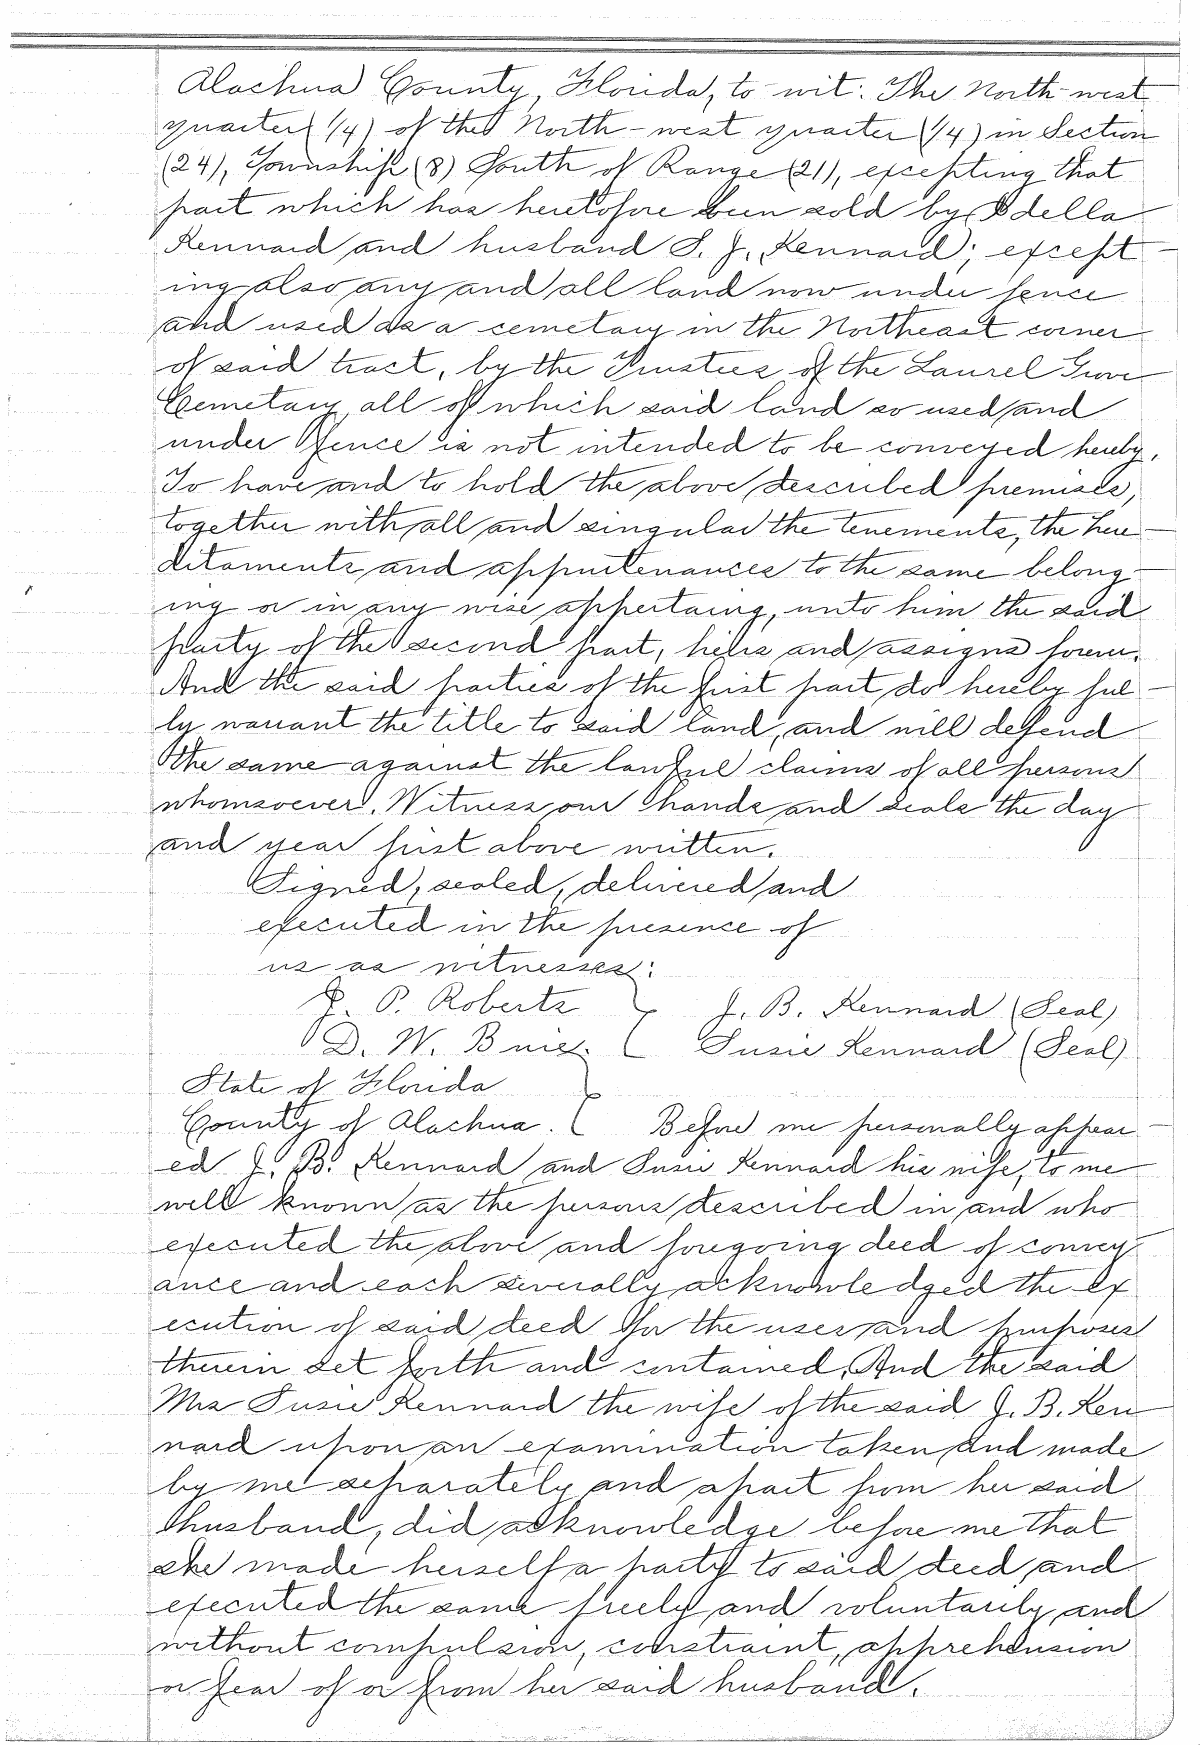 Alachua County, Florida, to-wit: The North-west
quarter (1/4) of the North-west quarter (1/4) in Section
(24), Township (8) South of Range (21), excepting that
part which has heretofore been sold by Odella
Kennard and husband S. J. Kennard; except-
ing also any and all land now under fence
and used as a cemetary in the Northeast corner
of said tract, by the Trustees of the Laurel Grove
Cemetary, all of which said land so used and
under fence is not intended to be conveyed hereby.
To have and to hold the above described premises,
together with all and singular the tenements, the here-
ditaments and appurtenances to the same belong-
ing or in any wise appertaing, unto him the said
party of the second part, heirs and assigns forevr.
And the said parties of the first part do hereby ful-
ly warrant the title to said land, and will defend
the same against the lawful claims of all persons
whomsoever. Witness our hands and seals the day
and year first above written.
Signed, sealed, delivered and
executed in the presence of
us as witnesses:
J. P. Roberts } J. B. Kennard (Seal)
D. W. Brice. { Susie Kennard (Seal)
State of Florida }
County of Alachua. { Before me personally appear-
ed J. B. Kennard and Susie Kennard his wife, to me
well known as the persons described in and who
executed the above and foregoing deed of convey-
ance and each severally acknowledged the ex
ecution of said deed for the uses and purposes
therein set forth and contained. And the said
Mrs Susie Kennard the wife of the said J. B. Ken-
nard upon an examination taken and made
by me separately and apart from her said
husband, did acknowledge before me that
she made herself a party to said deed and
executed the same freely and voluntarily and
without compulsion, constraint, apprehension
or fear of or from her said husband.